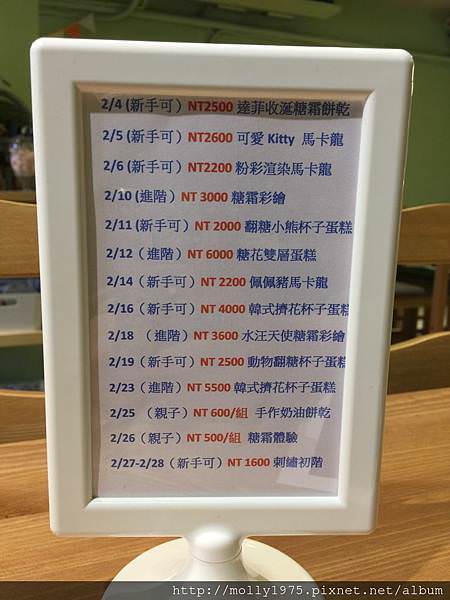 2/4 (新手可) NT2500 達菲收涎糖霜餅乾
2/5 (新手可) NT2600 可愛 Kitty 馬卡龍
2/6 (新手可) NT2200 粉彩渲染馬卡龍
2/10 (進階) NT 3000 糖霜彩繪
2/11 (新手可) NT 2000 翻糖小熊杯子蛋糕
2/12 (進階) NT 6000 糖花雙層蛋糕
2/14 (新手可) NT 2200 佩佩豬馬卡龍
2/16 (新手可) NT 4000 韓式擠花杯子蛋糕
2/18 (進階) NT 3600 水汪天使糖霜彩繪
2/19 (新手可) NT 2500 動物翻糖杯子蛋糕
2/23 (進階) NT 5500 韓式擠花杯子蛋糕
2/25 (親子) NT 600/組 手作奶油餅乾
2/26 (親子) NT 500/組 糖霜體驗
2/27-2/28 (新手可) NT 1600 刺繡初階
http://molly1975.pixnet.net/album